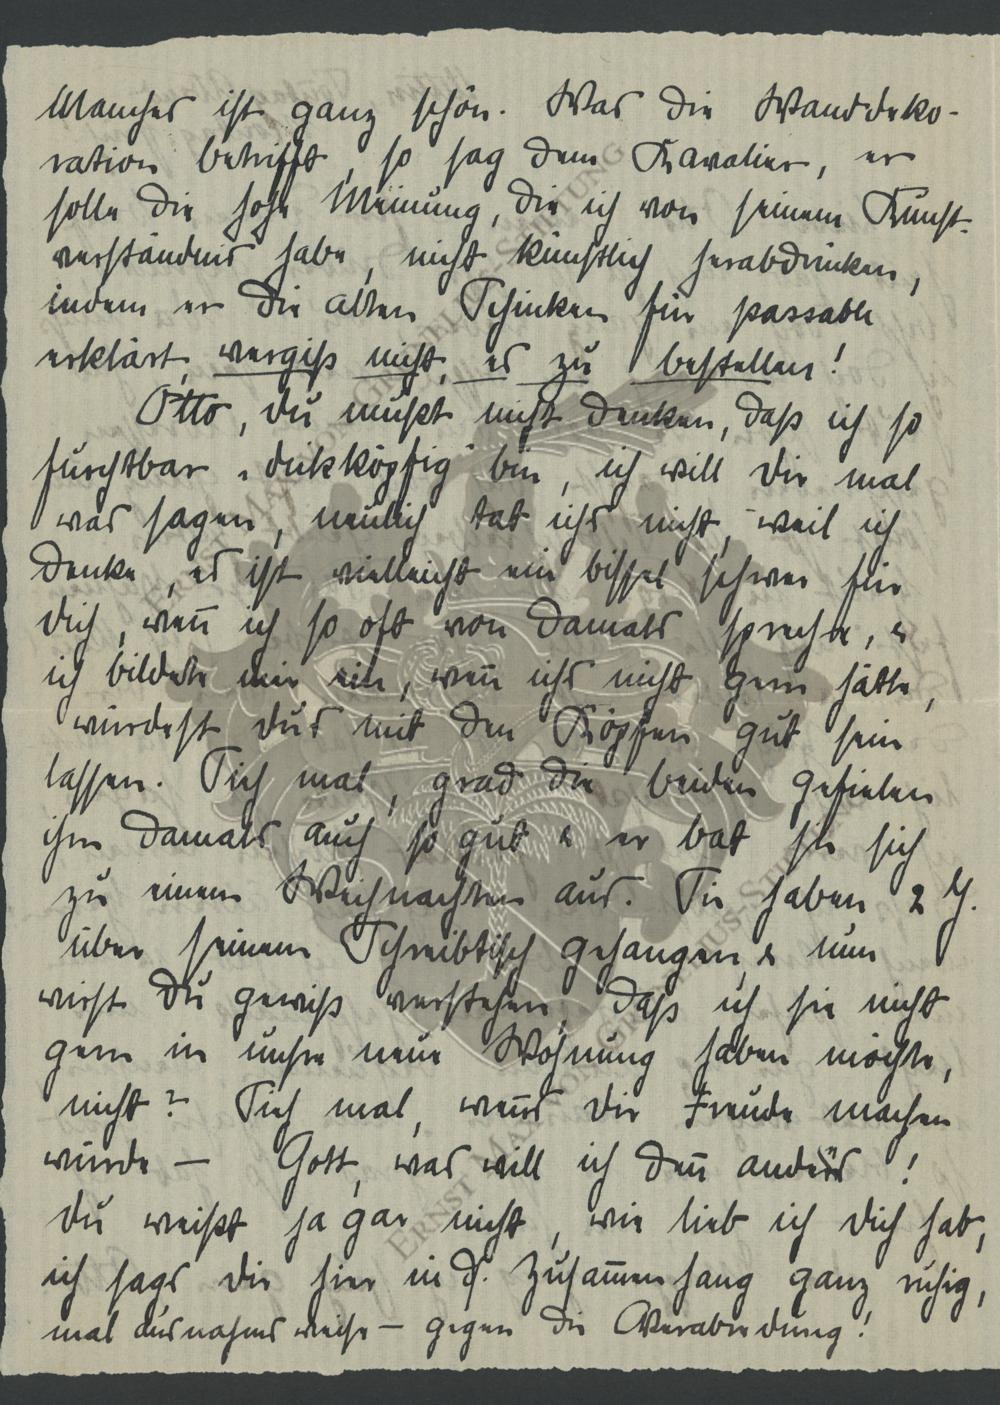 Manches ist ganz schön. Was die Wanddeko-
ration betrifft, so sag dem Kavalier, er
solle die hohe Meinung, die ich von seinem Kunst-
verständnis habe, nicht künstlich herabdrücken,
indem er die alten Schinken für passable
erklärt, vergiß nicht, es zu bestellen!
Otto, du mußt nicht denken, daß ich so
furchtbar „dickköpfig" bin, ich will dir mal
was sagen, neulich tat ichs nicht, weil ich
denke, es ist vielleicht ein bissel schwer für
dich, wen̄ ich so oft von damals spreche, &
ich bildete mir ein, wen̄ ichs nicht gern hätte,
würdest dus mit den Köpfen gut sein
lassen. Sieh mal, grad die beiden gefielen
ihm damals auch so gut & er bat sie sich
zu einem Weihnachten aus. Sie haben 2 J.
über seinem Schreibtisch gehangen & nun
wirst du gewiß verstehen, daß ich sie nicht
gern in unsre neue Wohnung haben möchte,
nicht? Sieh mal, wen̄s dir Freude machen
würde — Gott, was will ich den̄ anders!
du weißt ja gar nicht, wie lieb ich dich hab,
ich sags dir hier in d. Zusam̄enhang ganz ruhig,
mal ausnahmsweise — gegen die Verabredung!
ERNST MA